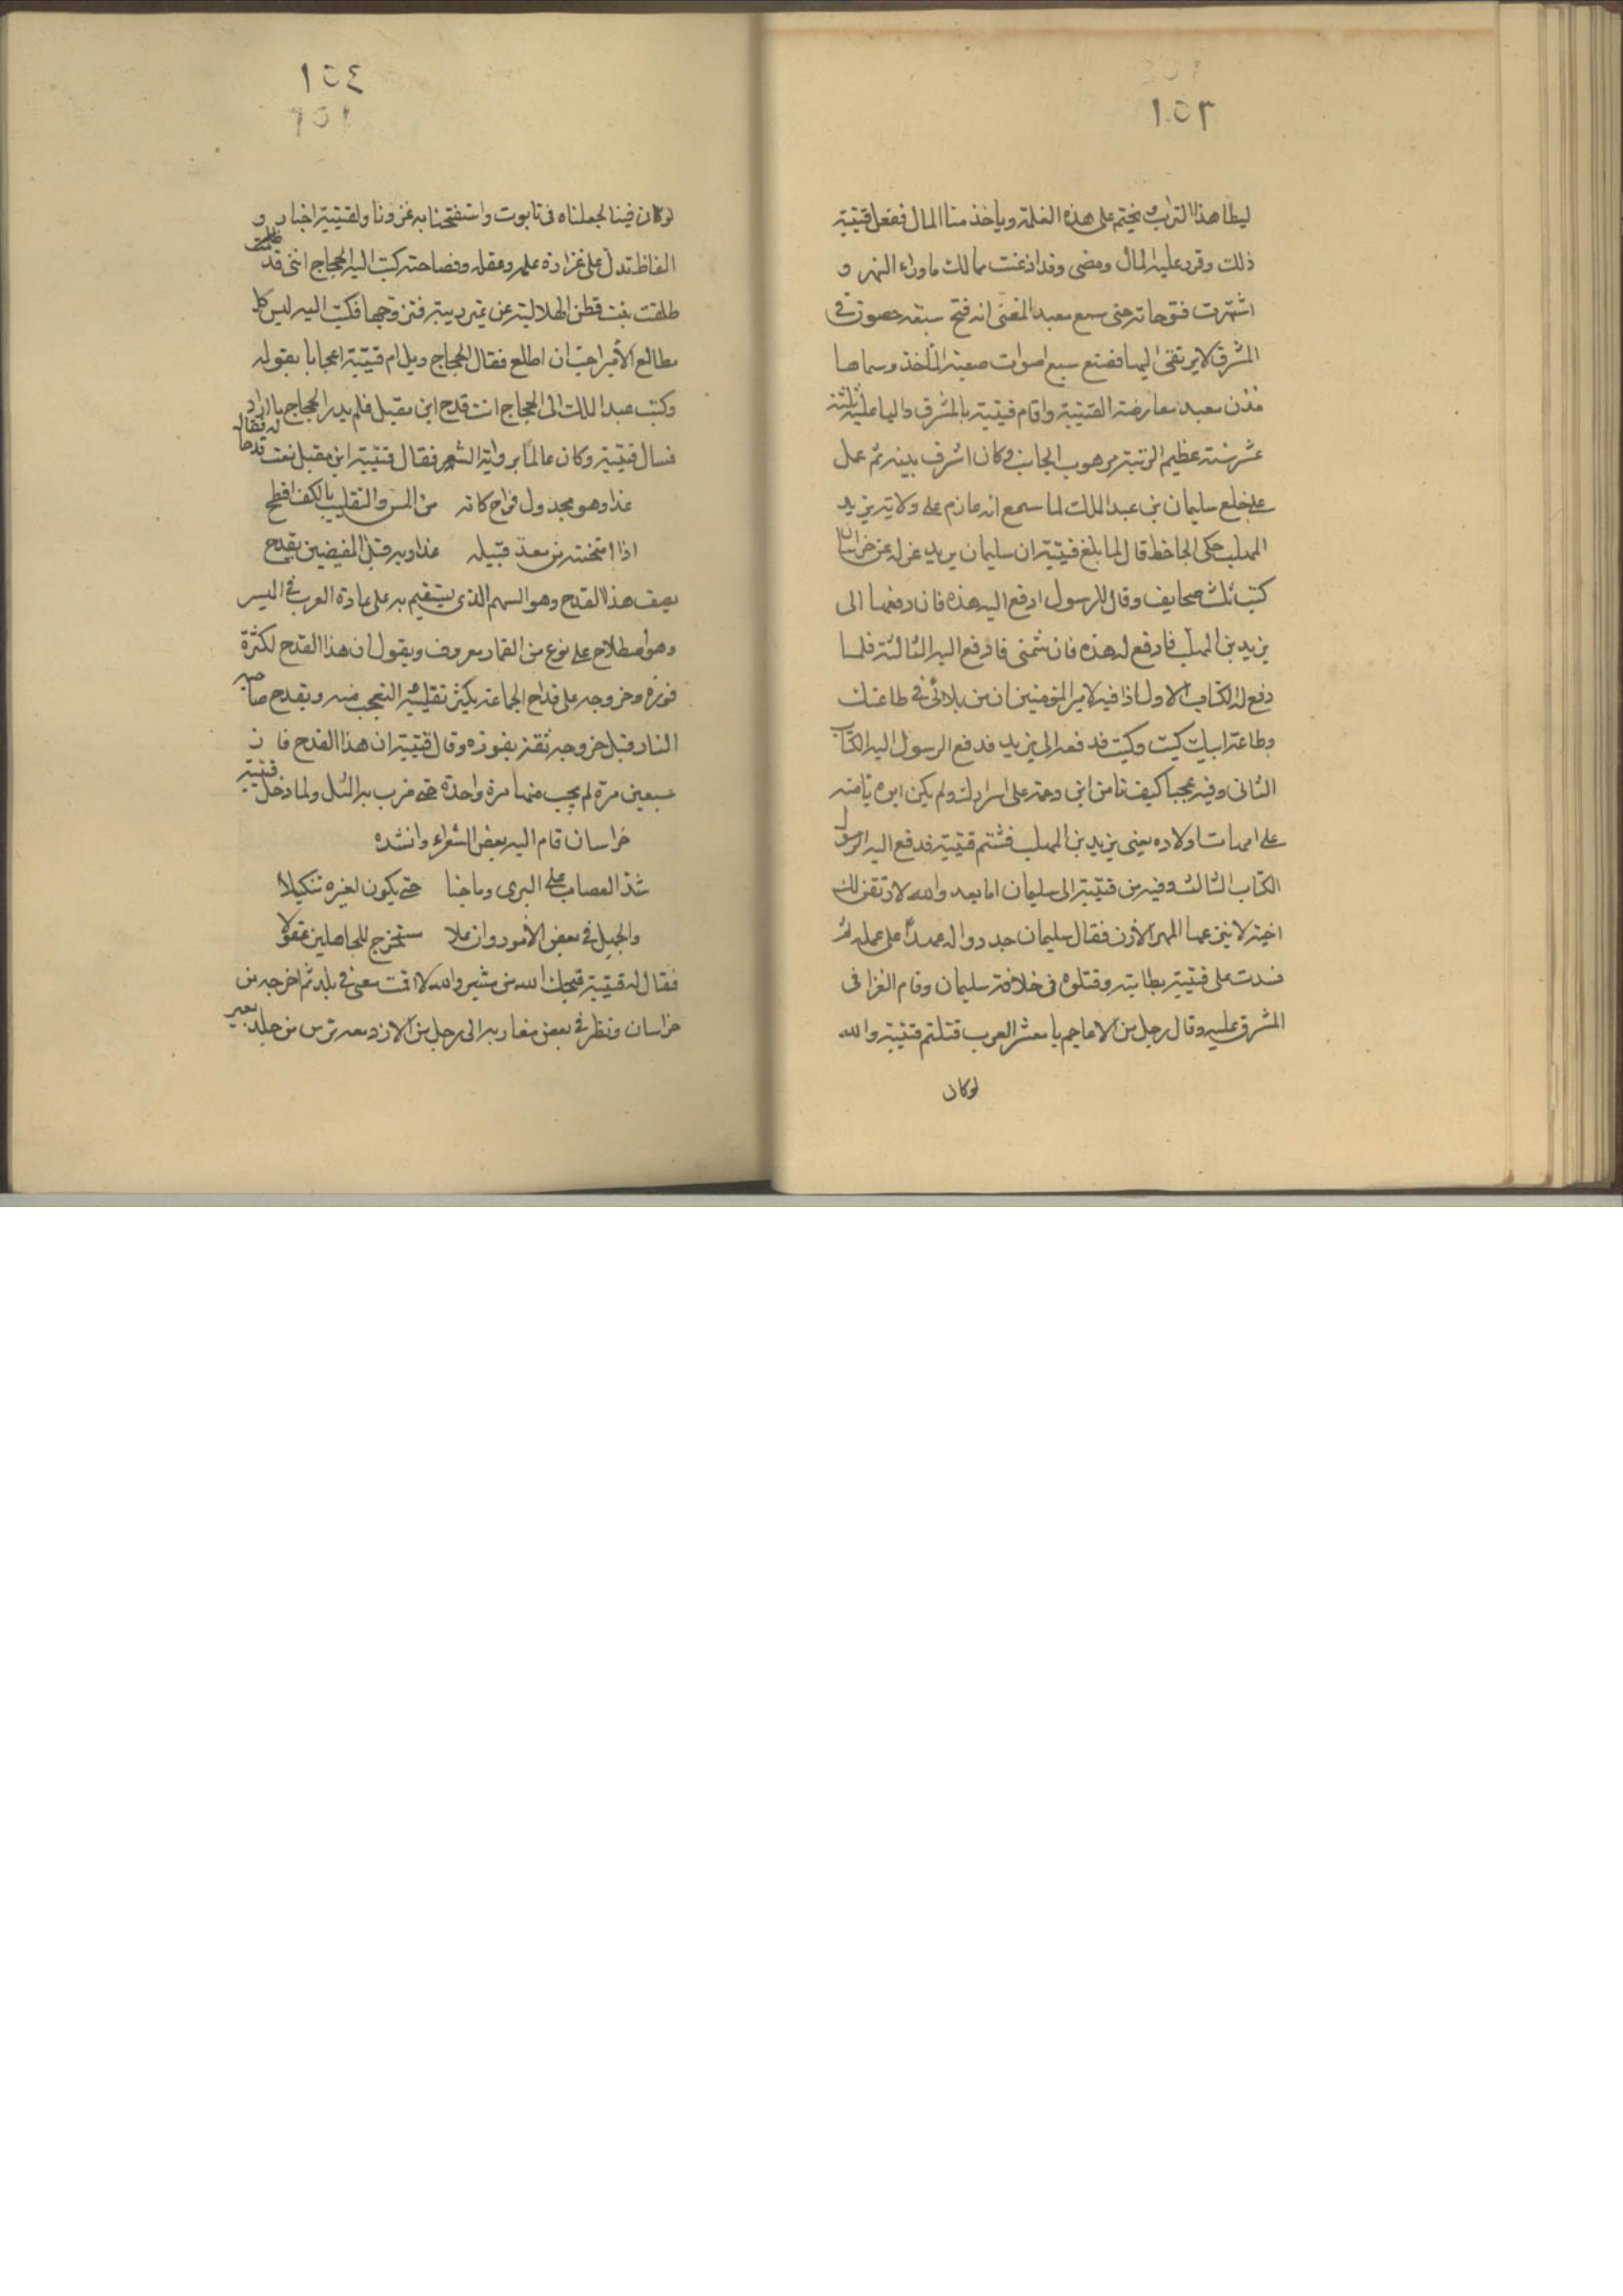 ١٥٣
ليطا هذا التراب ويختم على هذه الغلمة وياخذ منا المال ففعل قتيبة
ذلك وقرر عليه المال ومضى وقد اذعنت ممالك ماوراء النهر و
اشتهرت فتوحاته حتى سمع معبد المغنى انه فتح سبعة حصون فى
المشرق لا يرتقى اليها فصنع سبع اصوات صعبة المأخذ وسماها
مدن معبد معارضة لقتيبة واقام قتيبة بالمشرق واليا عليه ثلثة
عشر سنة عظيم الرتبة مرهوب الجانب وكان اشرف بنيه ثم عمل
على خلع سليمان بن عبد الملك لما سمع انه عازم على ولاية يزيد
المهلب حكى الجاحظ قال لما بلغ قتيبة ان سليمان يريد عزله عن خراسان
كتب ثلث صحايف وقال للرسول ادفع اليه هذه فان دفعها الى
يزيد بن المهلب فادفع له هذه فان شتمنى فادفع اليه الثالثة فلما
دفع له الكتاب الاول اذا فيه لامير المؤمنين ان من بلائى فى طاعتك
وطاعة ابيك كيت وكيت فدفعه الى يزيد فدفع الرسول اليه الكتاب
الثانى وفيه عجبا كيف تامن ابن دحمة على اسرارك ولم يكن ابوه يامنه
على امهات اولاده يعنى يزيد بن المهلب فشتم قتيبة فدفع اليه الرسول
الكتاب الثالث وفيه من قتيبة الى سليمان اما بعد والله لاوثقن لك
اخية لا ينزعها المهر الارن فقال سليمان جددوا له عهدا على عمله ثم
فسدت على قتيبة بطانته وقتلوه فى خلافة سليمان وقام العزا فى
المشرق عليه وقال رجل من الاعاجم يا معشر العرب قتلتم قتيبة والله
لوكان
١٥٤
لوكان فينا لجعلناه فى تابوت واستفتحنا به غزونا ولقتيبة اخبار و
الفاظ تدل على غزارة علمه وعقله وفصاحته كتب اليه الحجاج اننى قد طلقت
طلقت بنت قطن الهلالية عن غير ريبة فتزوجها فكتب اليه ليس كل
مطالع الأمير احب ان اطلع فقال الحجاج ويل ام قتيبة اعجابا بقوله
وكتب عبد الملك الى الحجاج انت قدح ابن مقبل فلم يدر الحجاج ما اراد
فسال قتيبة وكان عالما برواية الشعر فقال قتيبة ابن مقبل نعت قدحا له فقال
غدا وهو مجدول فراح كانه من المس والتقليب بالكف افطح
اذا امتحنته من معد قبيله غدا ربه قبل المفيضين يقدح
يصف هذا القدح وهو السهم الذى يستقسم به على عادة العرب فى الميسر
وهو اصطلاح على نوع من القمار معروف ويقول ان هذا القدح لكثرة
فوزه وخروجه على قداح الجماعة يكثر تقليبه التعجب منه ويقدح صاحبه
النار قبل خروجه ثقة بفوزه وقال قتيبة ان هذا القدح فاز
سبعين مرة لم يخب منها مرة واحدة حتى ضرب به المثل ولما دخل قتيبة
خراسان قام اليه بعض الشعراء وانشده
شد العصاب على البرى وما جنا حتى يكون لغيره تنكيلا
والجهل فى بعض الامور وان علا مستخرج للجاهلين عقولا
فقال له قتيبة قبحك الله من مشير والله لا اقمت معى فى بلد ثم اخرجه من
خراسان ونظر فى بعض مغازيه الى رجل من الازد معه ترس من جلد بعير